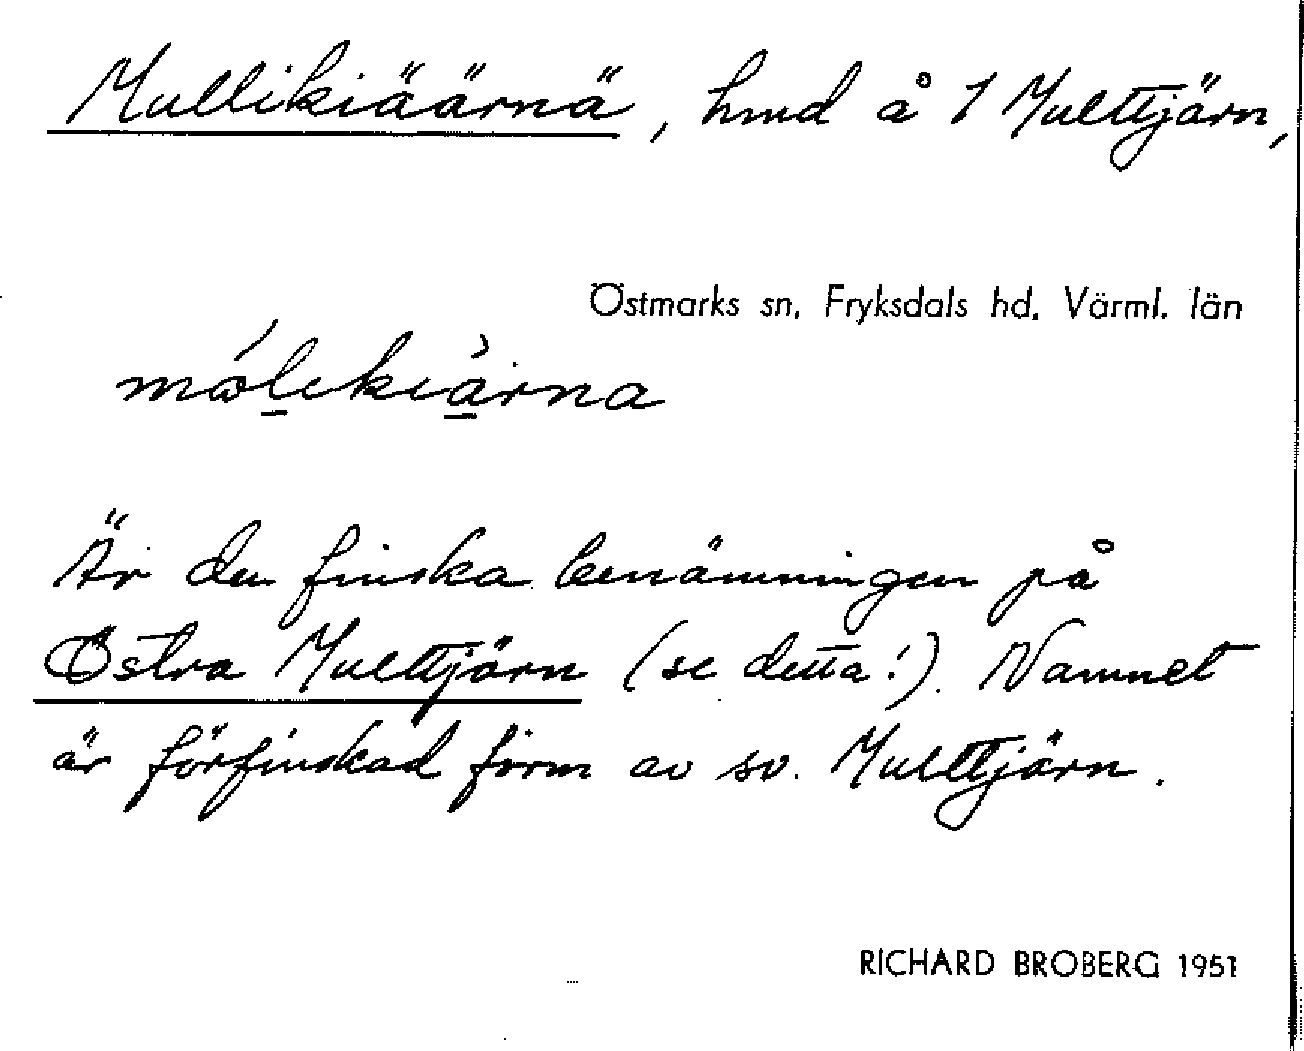 Mullikiäärnä, hmd å 1 Multtjärn,
Östmarks sn, Fryksdals hd, Värml. län
mólikiàrna
Är den finska benämningen på
Östra Multtjärn (se detta!). Namnet
är förfinskad form av sv. Multtjärn.
RICHARD BROBERG 1951